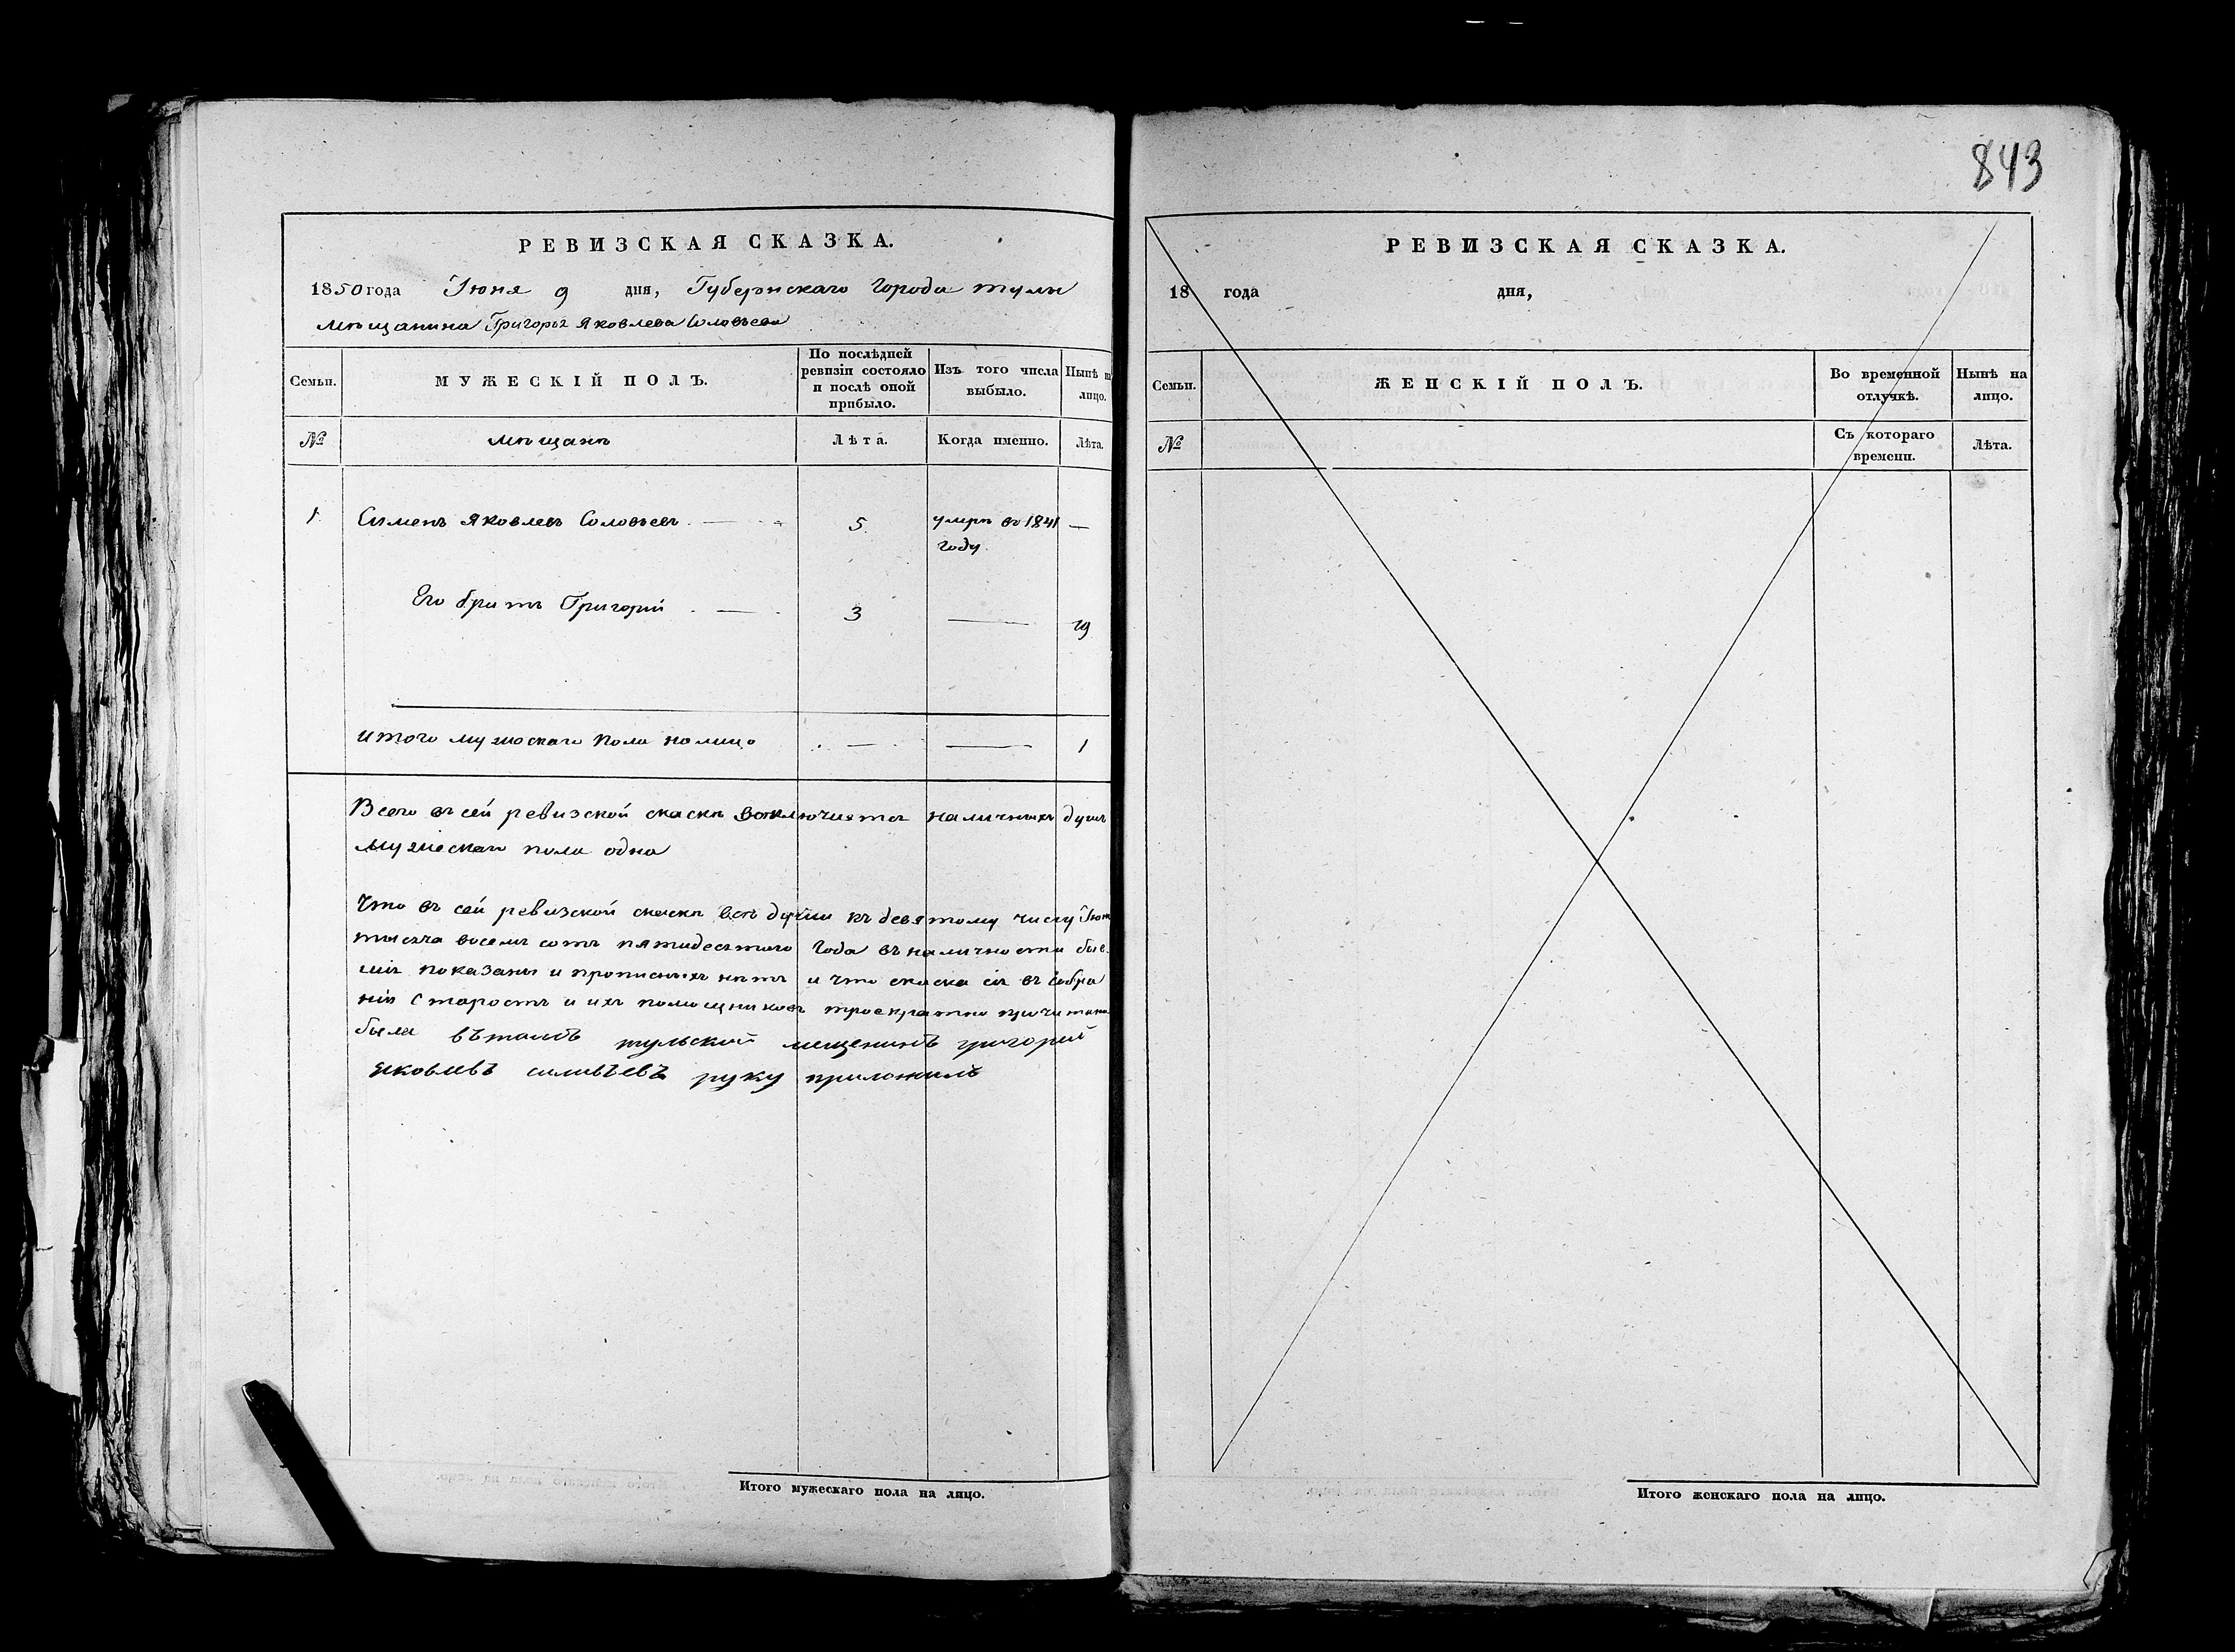 РЕВИЗСКАЯ СКАЗКА.
1850 года Іюня 9 дня, Губернскаго Города тулы
мѣщанина Григорья Яковлева Соловьева
Семьи.
МУЖЕСКІЙ ПОЛЪ.
По послѣдней ревизіи состояло и послѣ оной прибыло.
Изъ того числа выбыло.
Нынѣ на лицо.
№
мѣщанѣ
Лѣта.
Когда именно.
Лѣта.
1 Сименъ Яковлевъ Соловьевъ. — 5 умерѣ въ 1841 —
году.
Его братъ Григорій — 3 — 19
итого мужескаго пола налицо — — 1
Всего въ сей ревизской скаскѣ заключается наличныхъ душъ
мужескаго пола одна
Что въ сей ревизской скаскѣ всѣ души къ девятому числу Іюня
тысеча восемь сотъ пятидесятого Года въ наличности быв
шія показаны и прописныхъ нѣтъ и что скаска сія въ Собра
ніи Старостъ и ихъ помощниковъ троекратно прочитана
была вътомъ тульской мещенинъ григорий
яковлевъ силивъевъ руку приложилъ
Итого мужескаго пола на лицо.
843
РЕВИЗСКАЯ СКАЗКА.
18 года дня,
Семьи.
ЖЕНСКІЙ ПОЛЪ.
Во временной отлучкѣ.
Нынѣ на лицо.
№
Съ котораго времени.
Лѣта.
Итого женскаго пола на лицо.